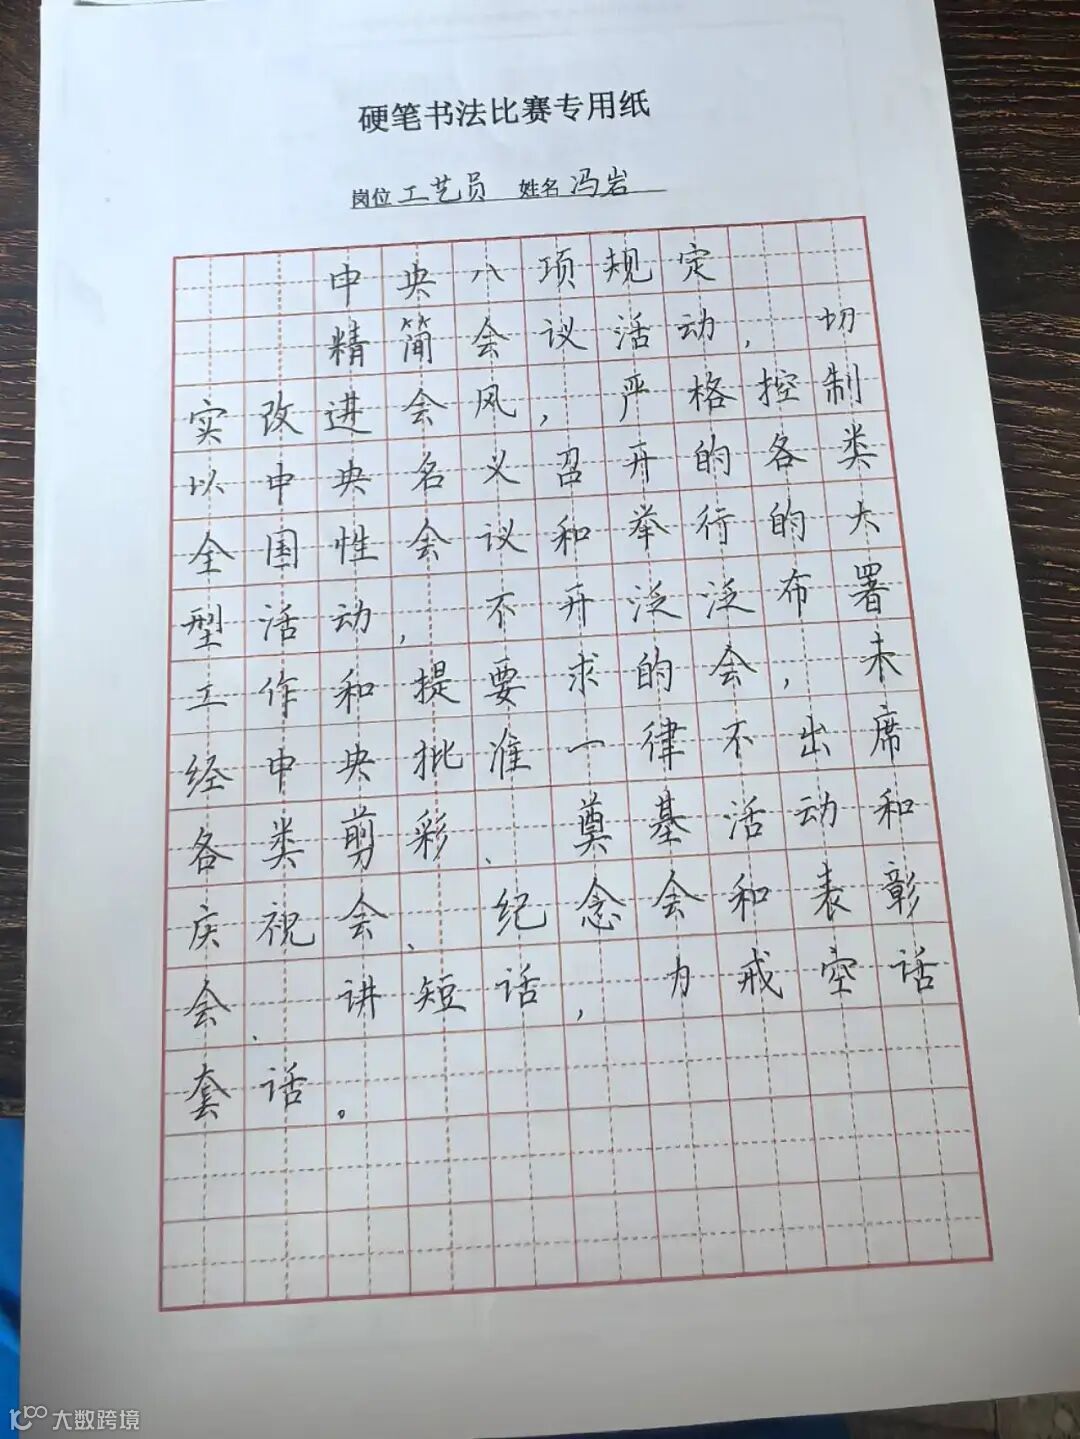 硬笔书法比赛专用纸
岗位 工艺员 姓名 冯岩
中央八项规定
精简会议活动，切
实改进会风，严格控制
以中央名义召开的各类
全国性会议和举行的大
型活动，不开泛泛布署
工作和提要求的会，未
经中央批准一律不出席
各类剪彩、奠基活动和
庆祝会、纪念会和表彰
会、讲短话，力戒空话
套话。
大数跨境